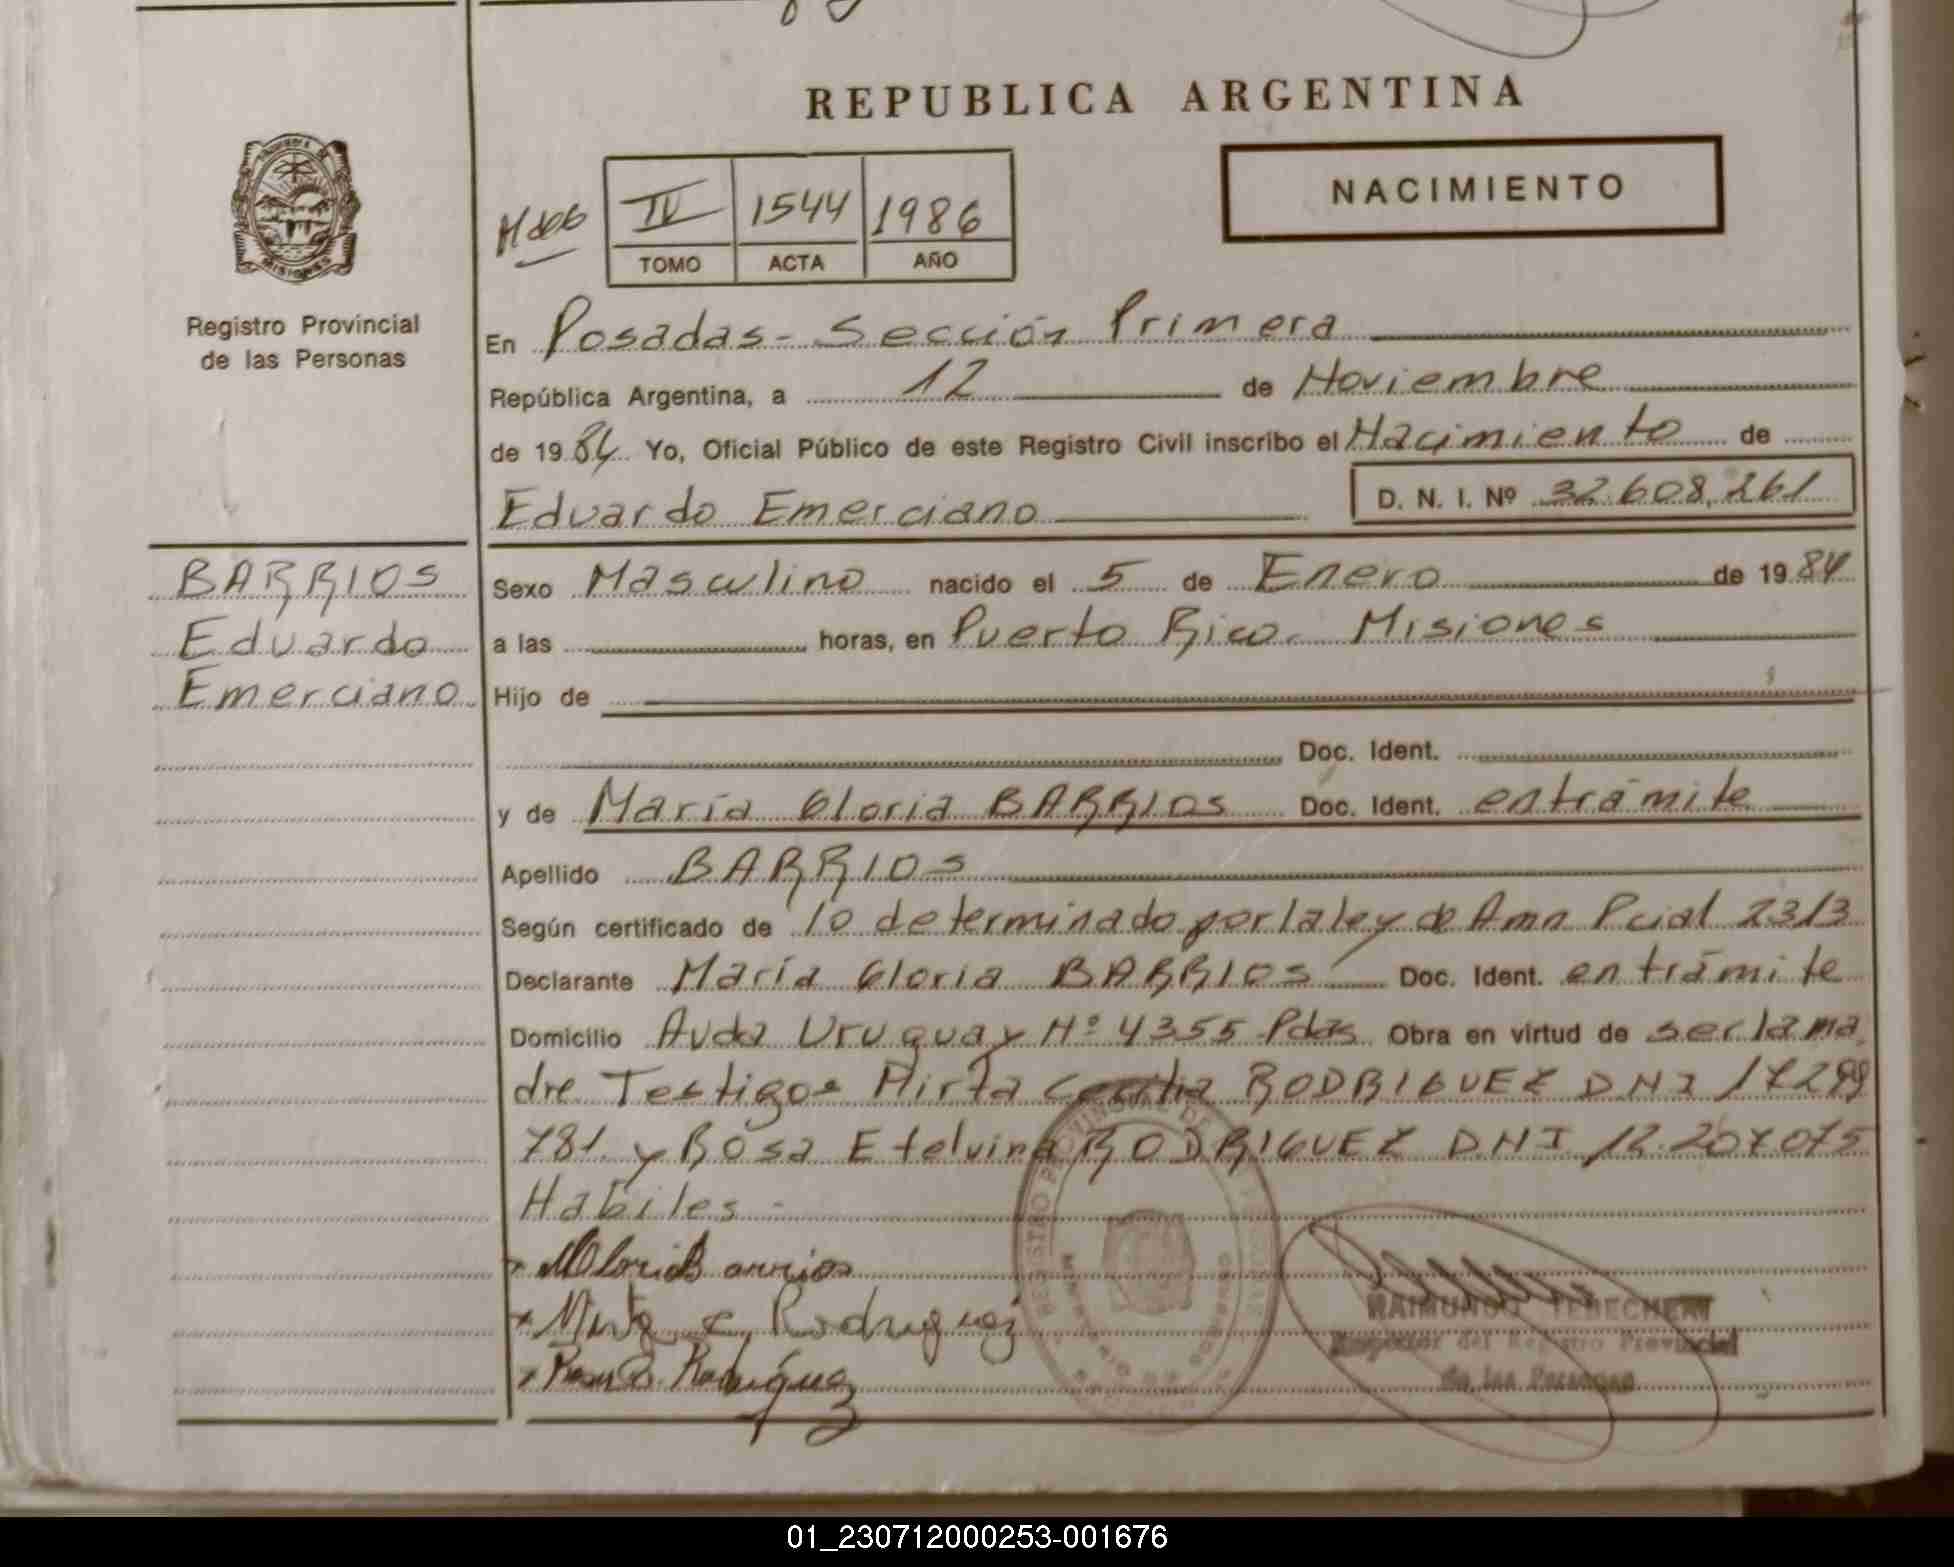 REPUBLICA ARGENTINA
NACIMIENTO
IV 1544 1986
TOMO ACTA AÑO
MISIONES
Registro Provincial
de las Personas
En Posadas - Sección Primera
República Argentina, a 12 de Noviembre
de 1986 Yo, Oficial Público de este Registro Civil inscribo el Nacimiento de
Eduardo Emerciano D. N. I. Nº 32.608.261
BARRIOS
Eduardo
Emerciano
Sexo Masculino nacido el 5 de Enero de 1984
a las horas, en Puerto Rico - Misiones
Hijo de
Doc. Ident.
y de María Gloria BARRIOS Doc. Ident. en trámite
Apellido BARRIOS
Según certificado de lo determinado por la ley de Amn Pcial 2313
Declarante María Gloria BARRIOS Doc. Ident. en trámite
Domicilio Avda Uruguay Nº 4355 Pdas Obra en virtud de ser la ma
dre Testigos Mirta Cecilia RODRIGUEZ DNI 17299
781 y Rosa Etelvina RODRIGUEZ DNI 12.207075
Habiles -
MGloria Barrios
Mirta C. Rodriguez
Rosa E. Rodríguez
RAIMUNDO
Inspector del Registro Provincial
de las Personas
01_230712000253-001676